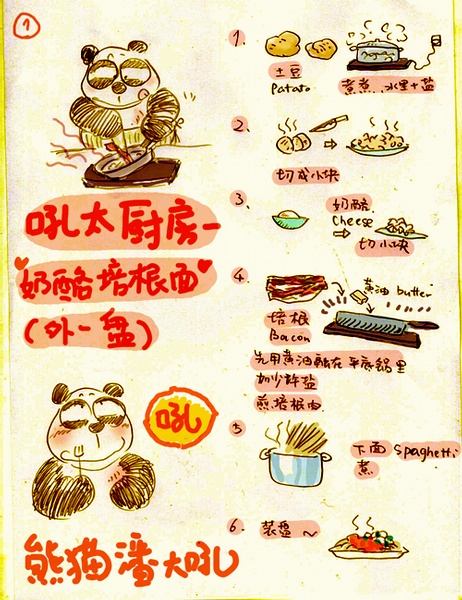 1
吼太厨房—
奶酪培根面
(外一盘)
吼
熊猫潘大吼
1.
土豆
Patato
煮煮..水里+盐
2.
切成小块
3.
奶酪
Cheese
切小块
4
黄油 butter
培根
Bacon
先用黄油融在平底锅里
加少许盐
煎培根肉.
5
下面 Spaghetti
煮
6.
装盘~